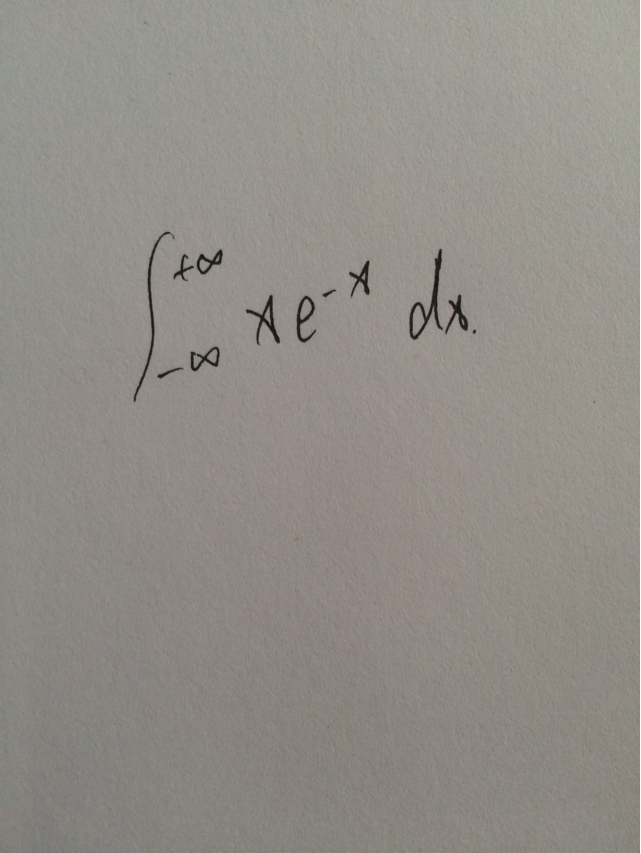 ∫_{-∞}^{+∞} x e^{-x} dx.